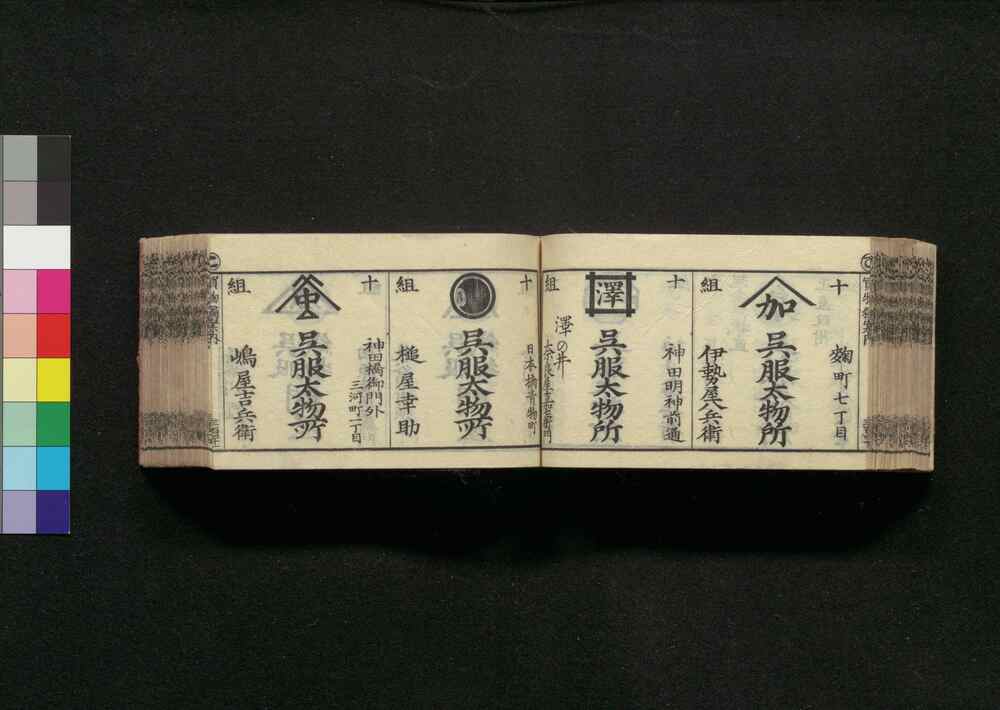 十
麹町七丁目
加
呉服太物所
組
伊勢屋八兵衛
十
神田明神前通
澤
呉服太物所
組
澤の井
十
日本橋青物町
呉服太物所
組
槌屋幸助
十
神田橋御門外
三河町二丁目
虫
呉服太物所
組
嶋屋吉兵衛